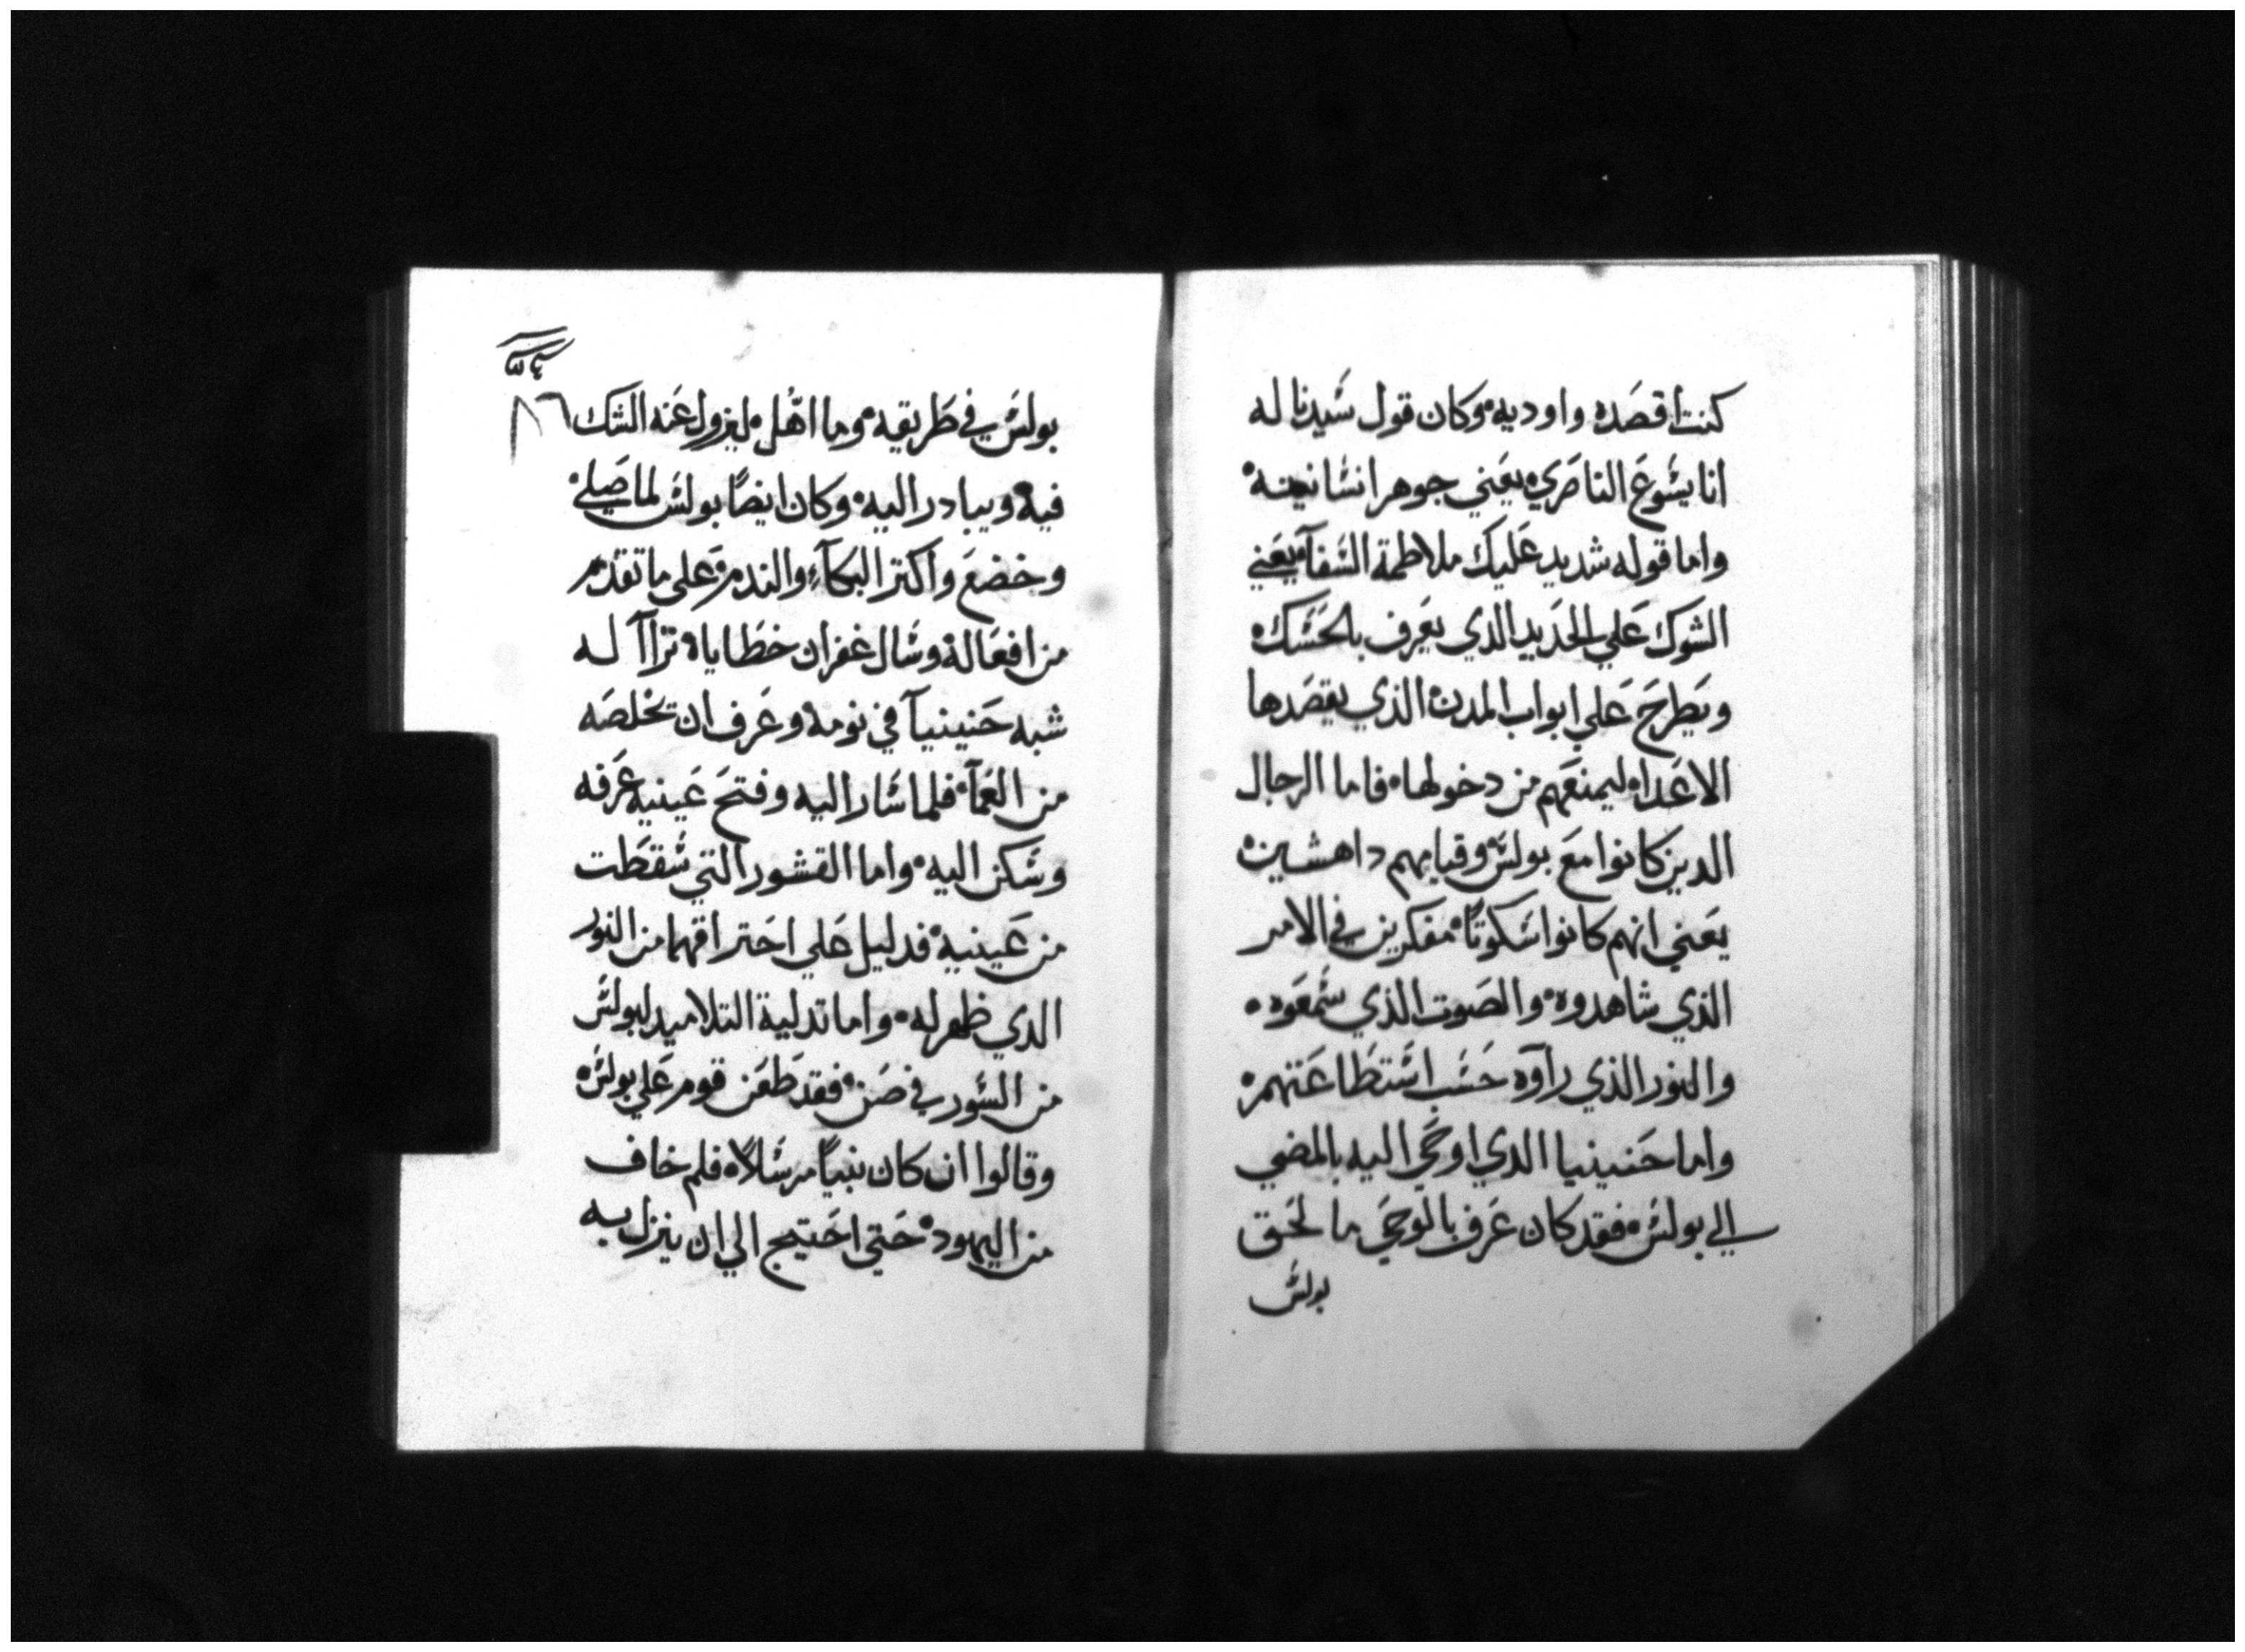 كنت اقصده واوديه وكان قول سيدنا له
انا يسوع الناصري يعني جوهر انسانيته
واما قوله شديد عليك ملاطمة السفا يعني
الشوك علي الحديد الدي يعرف بالحسك
ويطرح علي ابواب المدن الذي يقصدها
الاعداء ليمنعهم من دخولها فاما الرجال
الدين كانوا مع بولس وقيامهم داهشين
يعني انهم كانوا سكوتًا مفكرين في الامر
الذي شاهدوه والصوت الذي سمعوه
والنور الذي راوه حسب استطاعتهم
واما حنينيا الدي اوحي اليه بالمضي
الي بولس فقد كان عرف بالوحي ما لحق
بولس
٨٦
بولس في طريقه وما اهل ليزول عنه الشك
فيه ويبادر اليه وكان ايضًا بولس لما صلي
وخضع واكتر البكآء والندم علي ما تقدم
من افعاله وسال غفران خطاياه تراآ له
شبه حنينيآ في نومه وعرف ان تخلصه
من العمآ فلما سار اليه وفتح عينيه عرفه
وسكن اليه واما القشور التي سقطت
من عينيه فدليل علي احتراقهما من النور
الدي ظهر له واما تدلية التلاميد لبولس
من السور في صن فقد طعن قوم علي بولس
وقالوا ان كان نبيًا مرسلاً فلم خاف
من اليهود حتي احتيج الي ان ينزل به